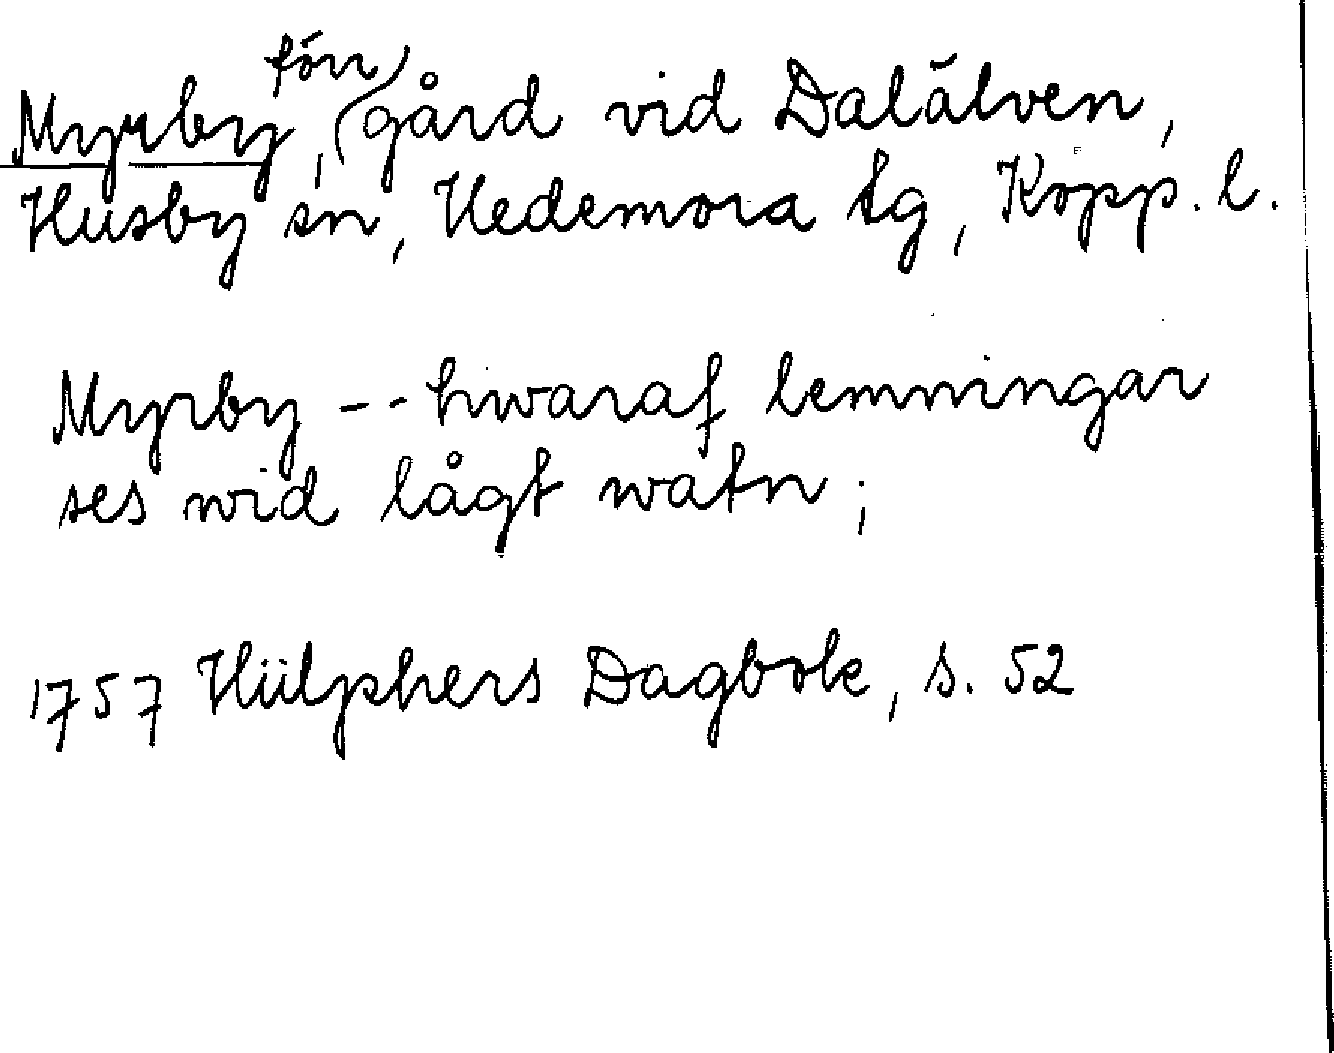 Myrby, förr gård vid Dalälven,
Husby sn, Hedemora tg, Kopp. l.
Myrby -- hwaraf lemningar
ses wid lågt watn;
1757 Hülphers Dagbok, s. 52